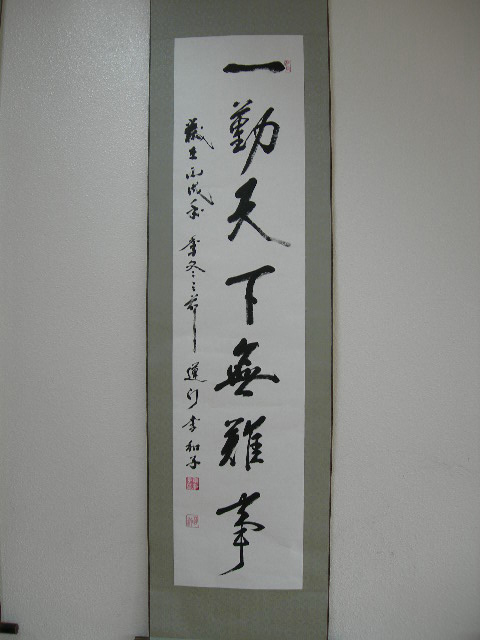 一勤天下無難事
歲在丙戌年 季冬之節 蓮汀 李和子